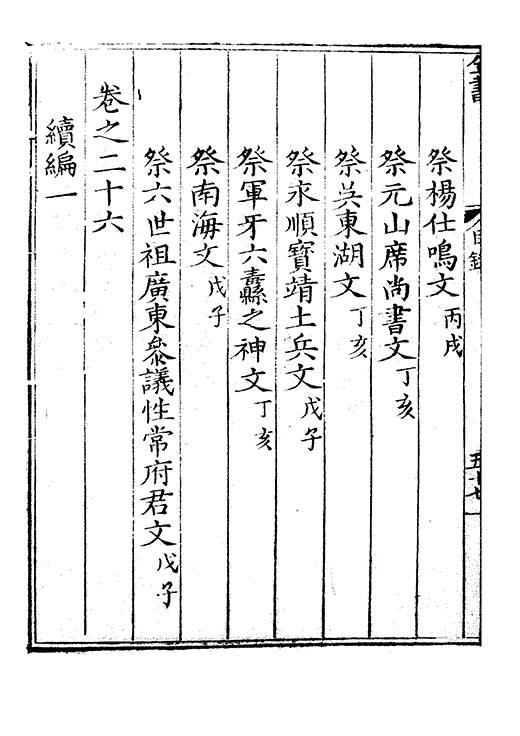 全書
目錄
五十七
祭楊仕鳴文 丙戌
祭元山席尚書文 丁亥
祭吳東湖文 丁亥
祭永順寶靖土兵文 戊子
祭軍牙六纛之神文 丁亥
祭南海文 戊子
祭六世祖廣東叅議性常府君文 戊子
卷之二十六
續編一